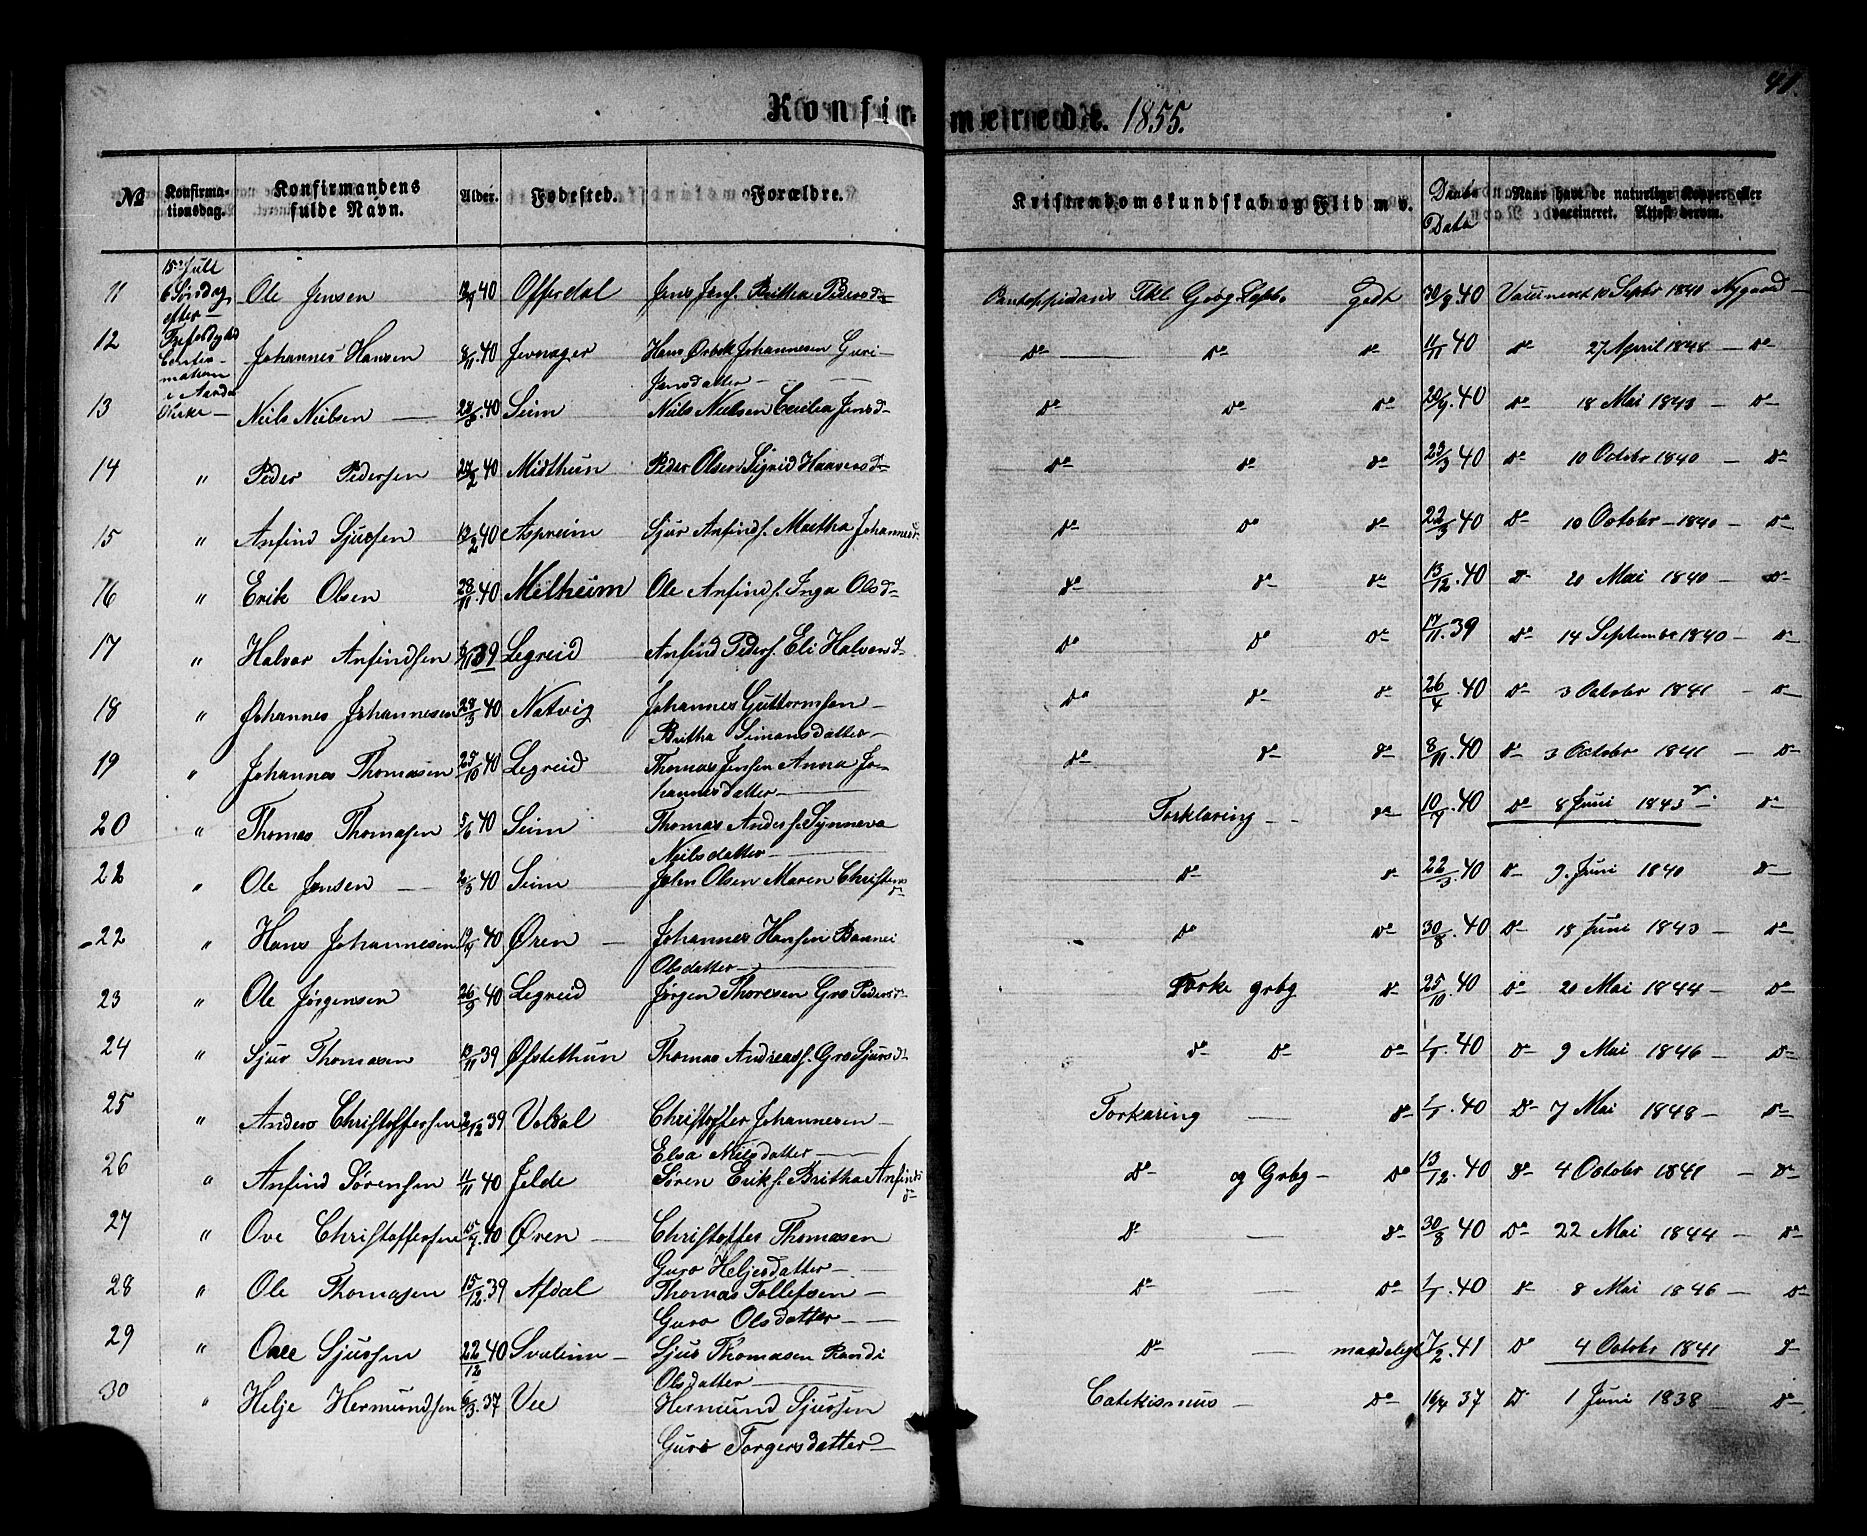 41.
Konfirmerede. 1855.
No Konfirmationsdag. Konfirmandens fulde Navn. Alder. Fødested. Forældre. Kristendomskundskab og Flid m v. Daabs Data Naar have de naturlige Kopper eller vaccineret. Attest derom.
15de Juli 6 Søndag efter Trefoldighed Confirmation i Aardal Kirke
11 Ole Jensen 40 Offerdal Jens Jens. Brithe Pedersd Pontoppidans Fkl Grbg Godt 30/8.40 Vaccineret 10 Septr 1840 Nygaard
12 Johannes Hansen 8/11.40 Jevnager Hans Johannesen Guri Jensdatter do do do 11/11 40 do 27 April 1848 do
13 Niels Nielsen 28/8.40 Seim Niels Nielsen Cecilia Jensd do do do 20/9.40 do 18 Mai 1843 do
14 " Peder Pedersen 27/2 40 Midthun Peder Olsen Sigrid Haaversd do do do 23/3 40 do 10 Octobr 1840 do
15 " Anfind Sjursen 40 Aspreim Sjur Anfinds. Martha Johannesd do do do 22/3 40 do 10 Octobr 1840 do
16 " Erik Olsen 28/11 40 Melheim Ole Anfinds. Inga Olsd do do do 13/12.40 do 20 Mai 1840 do
17 " Halvor Anfindsen 39 Legreid Anfind Peders. Eli Halvorsd do do do 17/11.39 do 14 September 1840 do
18 " Johannes Johannesen 28/3 40 Natvig Johannes Guttormsen Britha Simonsdatter do do do 26/4.40 do 3 Octobr 1841 do
19 " Johannes Thomasen 25/10 40 Legreid Thomas Jensen Anna Johannesdatter do do do 8/11.40 do 3 Octobr 1841 do
20 " Thomas Thomasen 5/6 40 Seim Thomas Anders. Synneva Nielsdatter Forklaring do 10/9.40 do 8 Juni 1843 do
22 " Ole Jensen 40 Seim John Olsen Maren Christensd do do 22/3.40 do 9 Juni 1840 do
22 " Hans Johannesen 40 Øren Johannes Hansen Olsdatter do do 30/8.40 do 18 Juni 1843 do
23 " Ole Jørgensen 26/9 40 Legreid Jørgen Thoresen Gro Pedersd Forkl grbg do 25/10.40 do 20 Mai 1844 do
24 " Sjur Thomasen 39 Øfstethun Thomas Andreas. Gro Sjursd do do do 1/1.40 do 9 Mai 1846 do
25 " Anders Christoffersen 39 Voldal Christoffer Johannesen Elsa Nielsdatter Forkaring do 1/1.40 do 7 Mai 1848 do
26 " Anfind Sørensen 11/11 40 Jelde Søren Eriks. Britha Anfindsd do og Grbg do 13/12.40 do 4 Octobr 1841 do
27 " Ove Christoffersen 40 Øren Christoffer Thomasen Guro Heljesdatter do do 30/8 40 do 22 Mai 1844 do
28 " Ole Thomasen 15/12.39 Afdal Thomas Tollefsen Guro Olsdatter do do 1/1.40 do 8 Mai 1846 do
29 " Sjursen 22/12 40 Svalem Sjur Thomasen Randi Olsdatter do maadeligt 7/2.41 do 4 Octobr 1841 do
30 " Helje Hermundsen 6/3.37 Vee Hermund Sjursen Guro Torgersdatter Catekismus do 16/4 37 do 1 Juni 1838 do